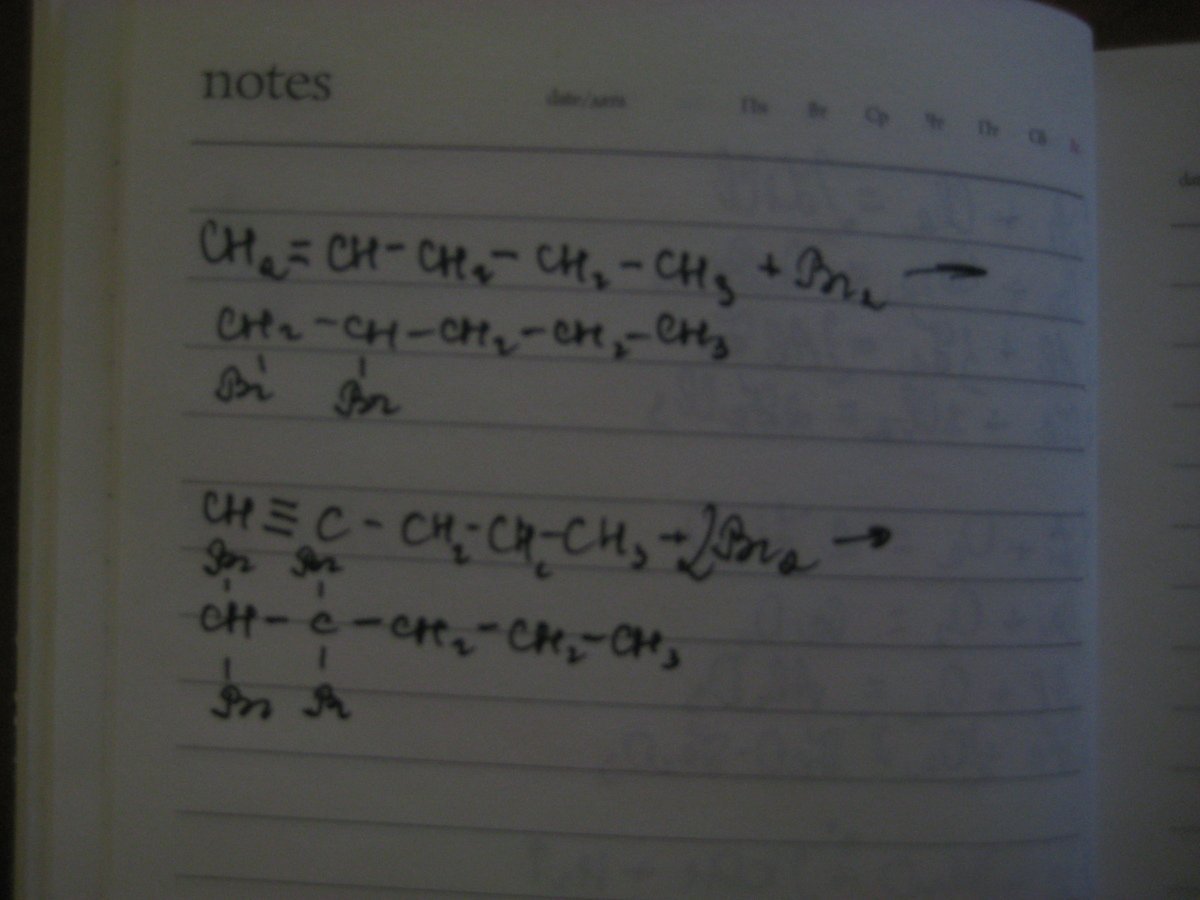 notes date/дата Пн Вт Ср Чт Пт Сб
CH₂=CH-CH₂-CH₂-CH₃ + Br₂ →
CH₂-CH-CH₂-CH₂-CH₃
Br Br
CH≡C-CH₂-CH₂-CH₃ + 2Br₂ →
Br Br
CH-C-CH₂-CH₂-CH₃
Br Br